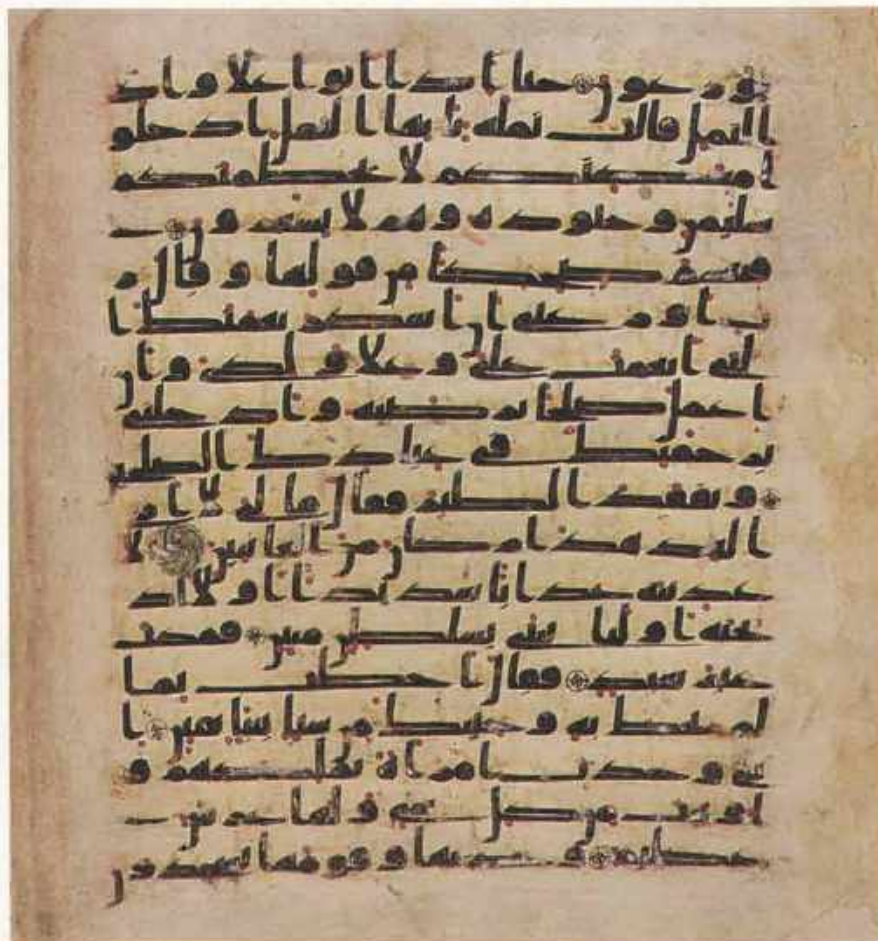 يوزعون حتا اذا اتوا علا واد
النمل قالت نملة يايها النمل ادخلو
ا مسكنكم لا يحطمنكم
سليمن وجنوده وهم لا يشعرون
فتبسم ضحكا من قولها وقال ر
ب اوزعني ان اشكر نعمتك ا
لتي انعمت علي وعلا ولدي وان
اعمل صلحا ترضيه وادخلني
برحمتك في عبادك الصلحين
وتفقد الطير فقال ما لي لا ارى
الهدهد ام كان من الغايبين لا
عذبنه عذابا شديدا او لااذ
بحنه او لياتيني بسلطن مبين فمكث
غير بعيد فقال احطت بما
لم تحط به وجيتك من سبا بنبا يقين ا
ني وجدت امراة تملكهم و
اوتيت من كل شي ولها عرش
عظيم وجدتها وقومها يسجدون